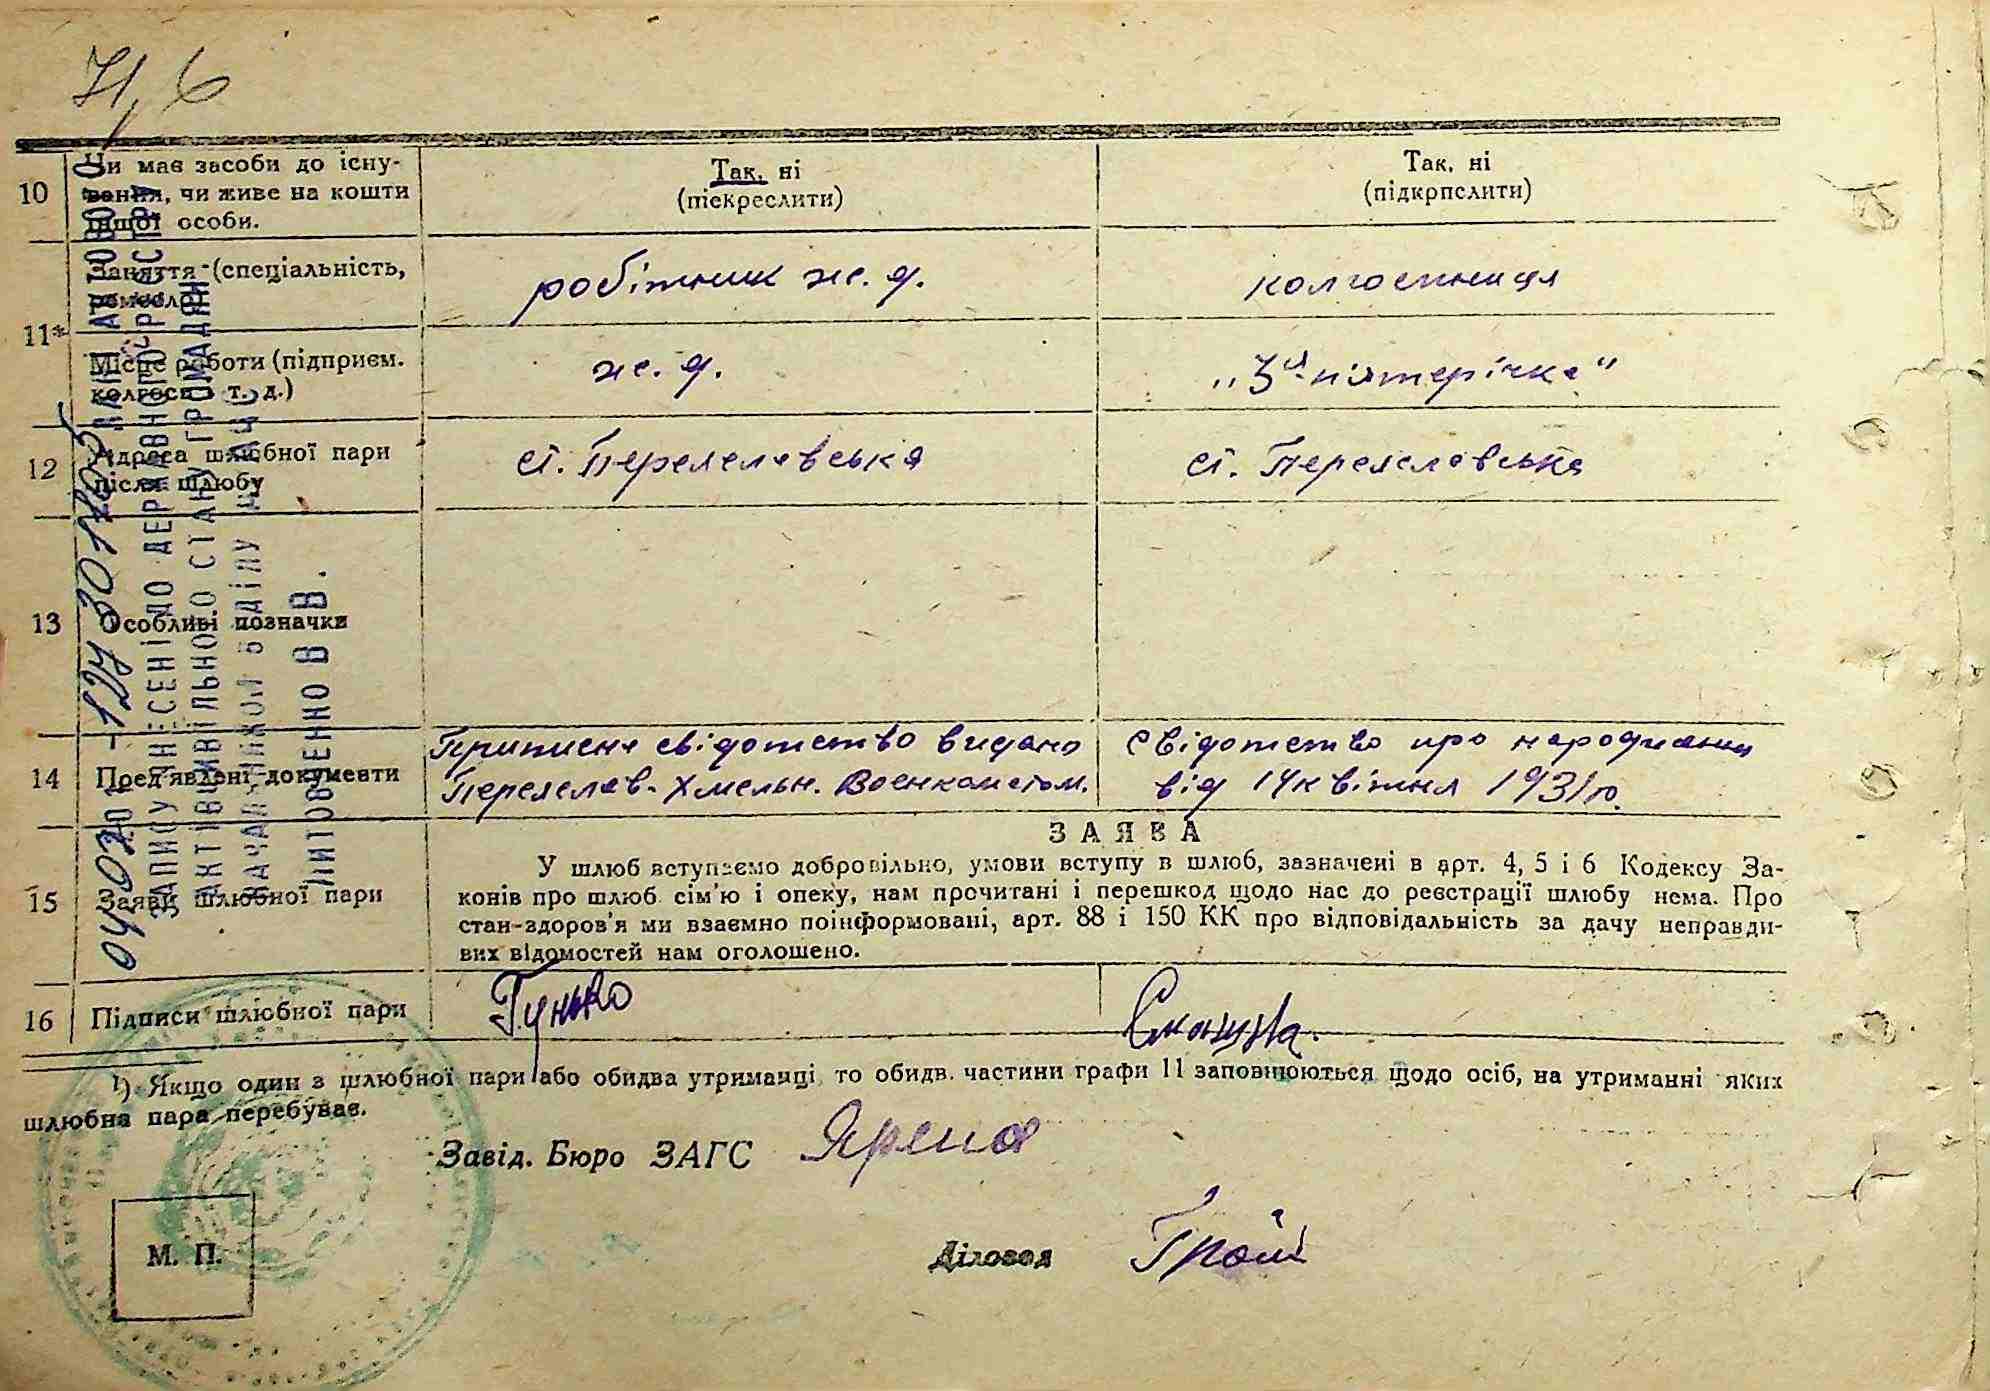 71,6
10
Чи має засоби до існу-
вання, чи живе на кошти
іншої особи.
Так, ні
(піскреслити)
Так, ні
(підкрпслити)
11*
Заняття (спеціальність,
ремесло)
робітник ж. д.
колгоспниця
Місце роботи (підприєм.
колгосп і т. д.)
ж. д.
„3й-пятерічка"
12
Адреса шлюбної пари
після шлюбу
ст. Переяславська
ст. Переяславська
13
Особливі позначки
14
Пред'явлені документи
Приписне свідотство видано
Переяслав-Хмельн. Военкоматом.
Свідотство про народження
від 14 квітня 1931 р.
15
Заяви шлюбної пари
ЗАЯВА
У шлюб вступаємо добровільно, умови вступу в шлюб, зазначені в арт. 4, 5 і 6 Кодексу За-
конів про шлюб сім'ю і опеку, нам прочитані і перешкод щодо нас до реєстрації шлюбу нема. Про
стан-здоров'я ми взаємно поінформовані, арт. 88 і 150 КК про відповідальність за дачу неправди-
вих відомостей нам оголошено.
16
Підписи шлюбної пари
Гунько
¹) Якщо один з шлюбної пари або обидва утриманці то обидв. частини графи 11 заповнюються щодо осіб, на утриманні яких
шлюбна пара перебуває.
Завід. Бюро ЗАГС
Діловод
М. П.
ЗАПИСУ ВНЕСЕНІ ДО ДЕРЖАВНОГО РЕЄСТРУ
АКТІВ ЦИВІЛЬНОГО СТАНУ ГРОМАДЯН
НАЧАЛЬНИКОМ ВІДДІЛУ
ЛИТОВЧЕННО В. В.